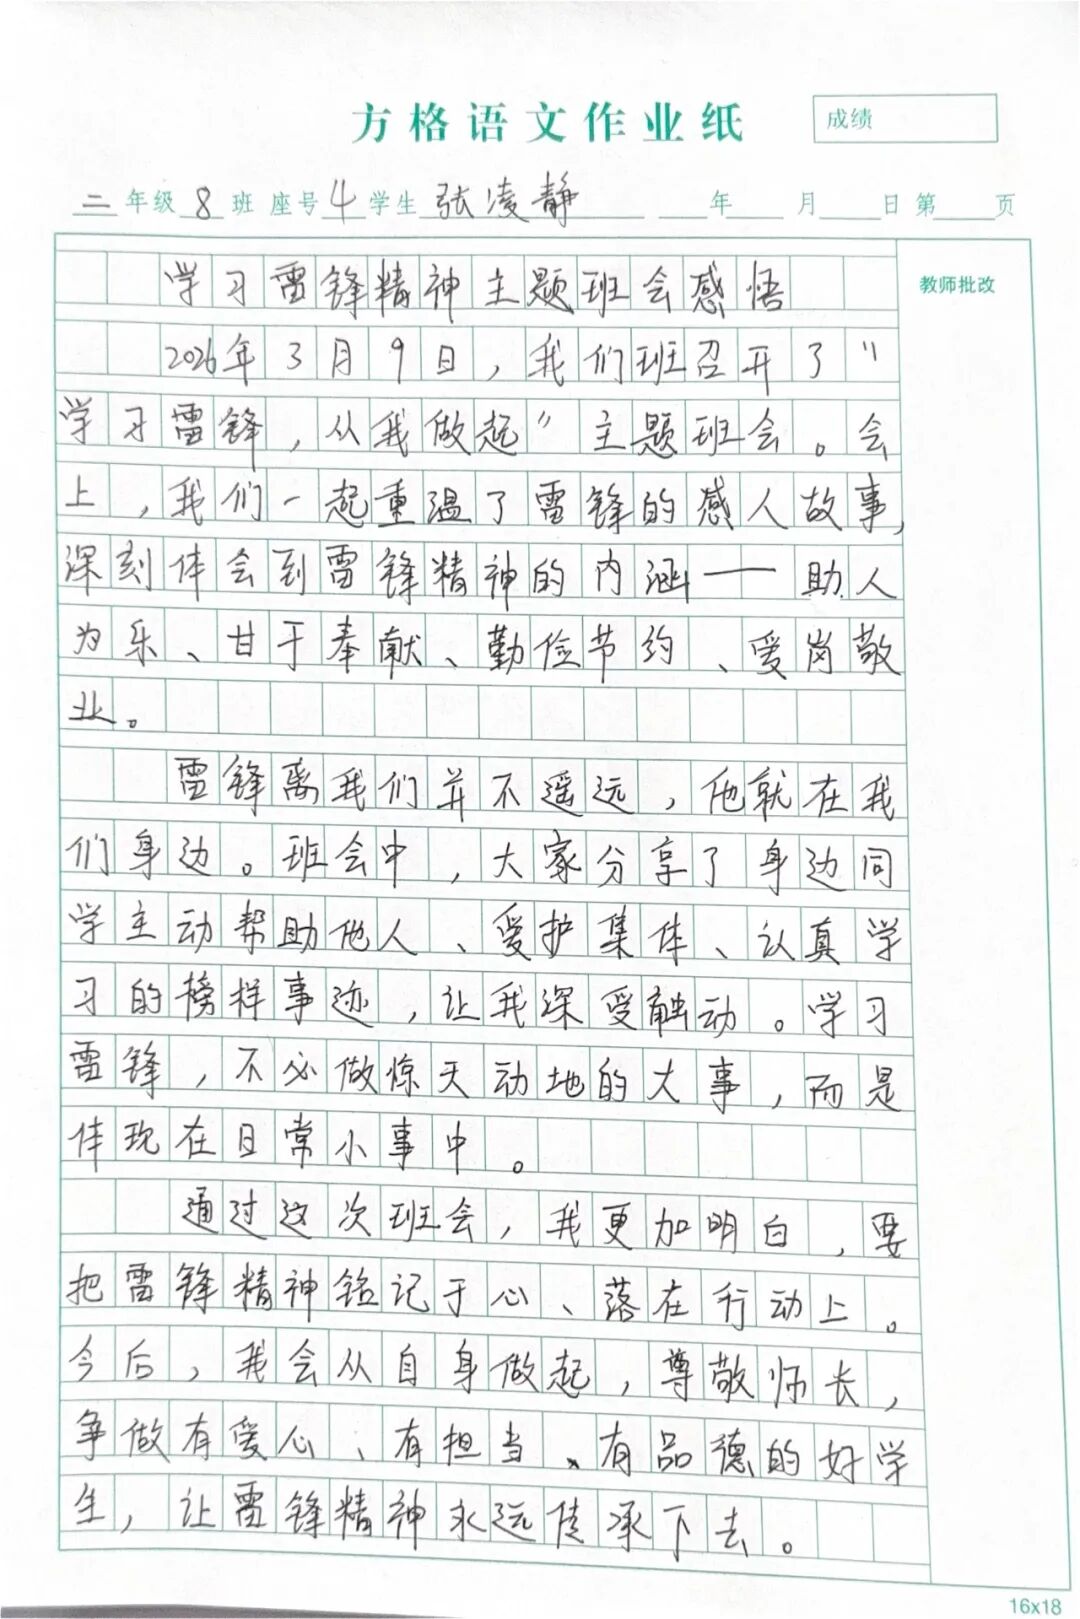 方格语文作业纸
成绩
二年级8班 座号4学生张凌静 年 月 日 第 页
教师批改
学习雷锋精神主题班会感悟
2026年3月9日，我们班召开了“
学习雷锋，从我做起”主题班会。会
上，我们一起重温了雷锋的感人故事，
深刻体会到雷锋精神的内涵——助人
为乐、甘于奉献、勤俭节约、爱岗敬
业。
雷锋离我们并不遥远，他就在我
们身边。班会中，大家分享了身边同
学主动帮助他人、爱护集体、认真学
习的榜样事迹，让我深受触动。学习
雷锋，不必做惊天动地的大事，而是
体现在日常小事中。
通过这次班会，我更加明白，要
把雷锋精神铭记于心、落在行动上。
今后，我会从自身做起，尊敬师长，
争做有爱心、有担当、有品德的好学
生，让雷锋精神永远传承下去。
16x18